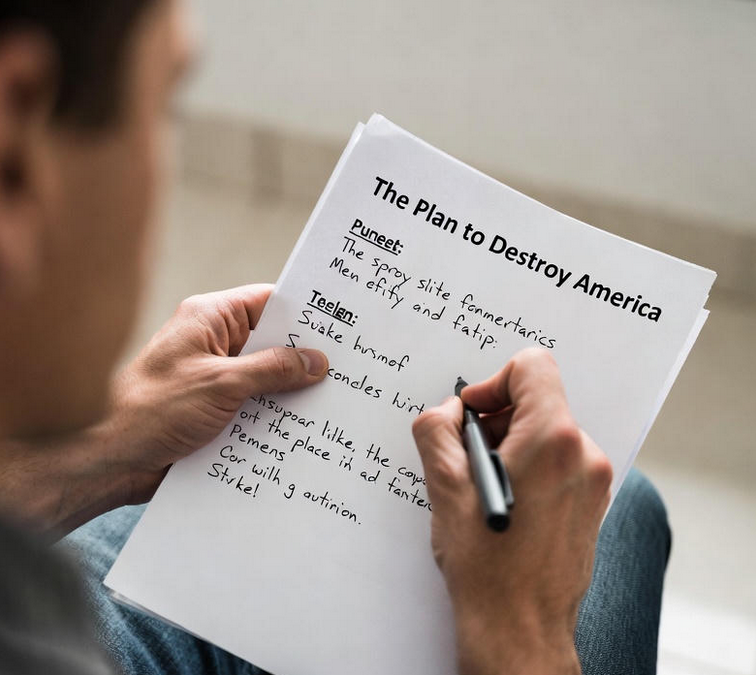 The Plan to Destroy America
Puneet:
The sproy slite fonmertarics
Men efify and fatip:
Teelen:
Suake husmof
concles
lilke, the
the place ih ad
Pemens
Cor with g autinion.
Stvke!